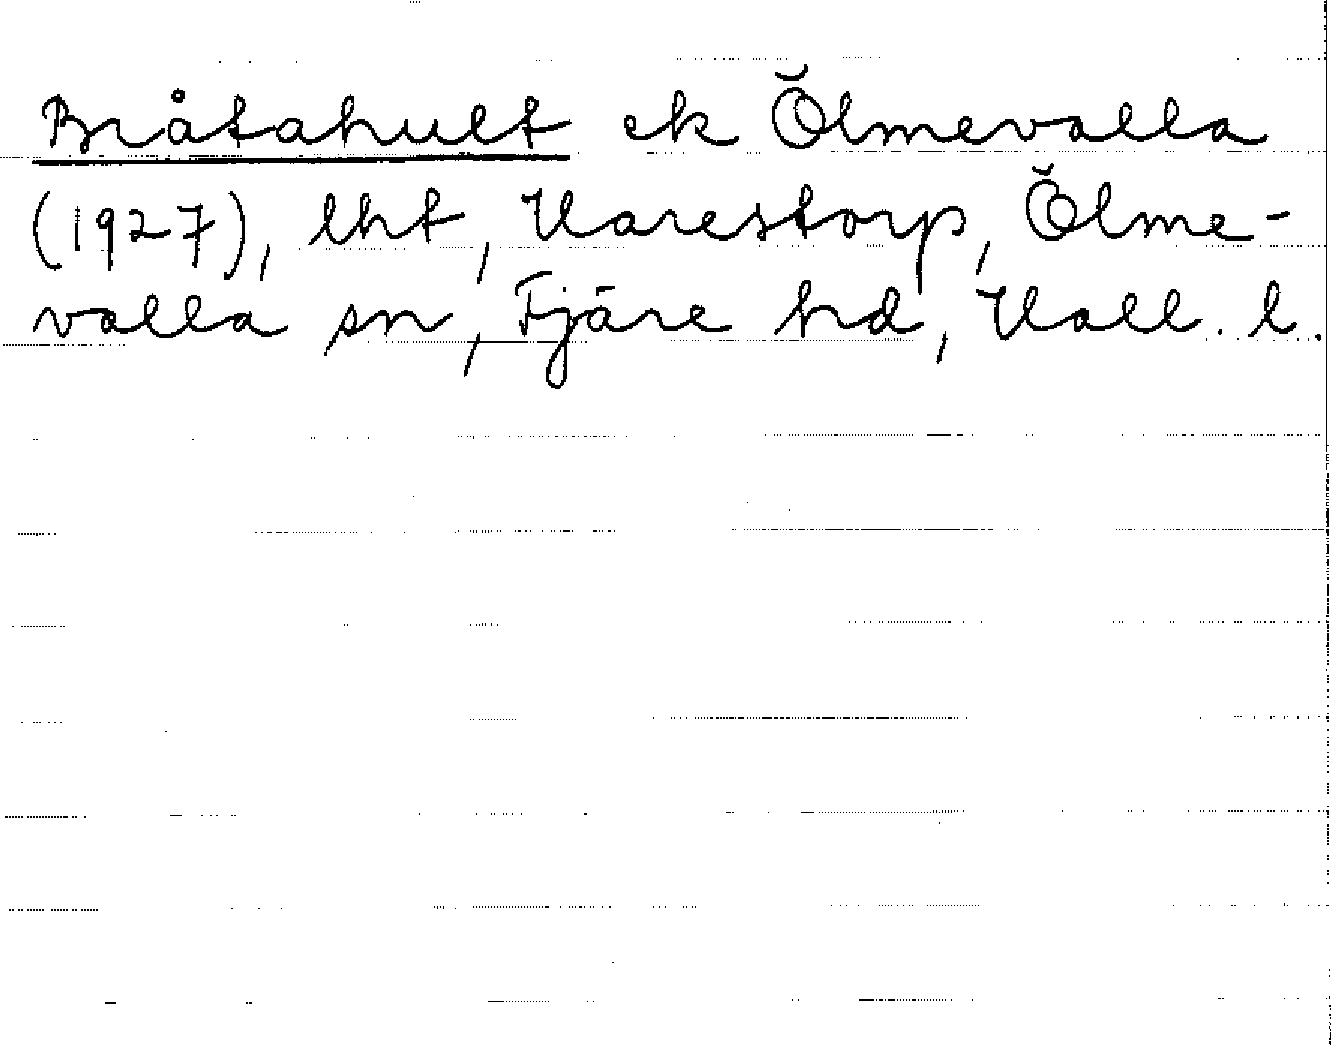 Bråtahult ek Ölmevalla
(1927), lht, Varestorp, Ölme-
valla sn, Fjäre hd, Hall. l.